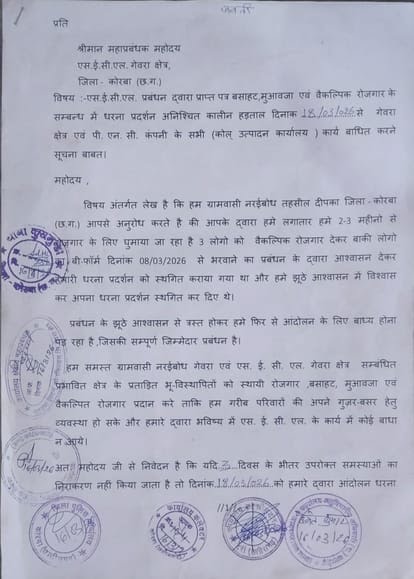 प्रति
श्रीमान महाप्रबंधक महोदय
एस.ई.सी.एल. गेवरा क्षेत्र,
जिला - कोरबा (छ.ग.)
विषय :-एस.ई.सी.एल. प्रबंधन द्वारा प्राप्त पत्र बसाहट,मुआवजा एवं वैकल्पिक रोजगार के
सम्बन्ध में धरना प्रदर्शन अनिश्चित कालीन हड़ताल दिनाक 18/03/026 से गेवरा
क्षेत्र एवं पी. एन. सी. कंपनी के सभी (कोल् उत्पादन कार्यालय ) कार्य बाधित करने
सूचना बाबत।
महोदय ,
विषय अंतर्गत लेख है कि हम ग्रामवासी नरईबोध तहसील दीपका जिला - कोरबा
(छ.ग.) आपसे अनुरोध करते है की आपके द्वारा हमे लगातार हमे 2-3 महीनो से
रोजगार के लिए घुमाया जा रहा है 3 लोगो को वैकल्पिक रोजगार देकर बाकी लोगो
बी-फॉर्म दिनांक 08/03/2026 से भरवाने का प्रबंधन के द्वारा आश्वासन देकर
हमारी धरना प्रदर्शन को स्थगित कराया गया था और हमे झूठे आश्वासन में विश्वास
कर अपना धरना प्रदर्शन स्थगित कर दिए थे।
प्रबंधन के झूठे आश्वासन से त्रस्त होकर हमे फिर से आंदोलन के लिए बाध्य होना
पड़ रहा है ,जिसकी सम्पूर्ण जिम्मेदार प्रबंधन है।
हम समस्त ग्रामवासी नरईबोध गेवरा एवं एस. ई. सी. एल. गेवरा क्षेत्र सम्बंधित
प्रभावित क्षेत्र के प्रताड़ित भू-विस्थापितों को स्थायी रोजगार ,बसाहट, मुआवजा एवं
वैकल्पित रोजगार प्रदान करे ताकि हम गरीब परिवारों की अपने गुज़र-बसर हेतु
व्यवस्था हो सके और हमारे द्वारा भविष्य में एस. ई. सी. एल. के कार्य में कोई बाधा
न आये।
अतः महोदय जी से निवेदन है कि यदि 3 दिवस के भीतर उपरोक्त समस्याओ का
निराकरण नहीं किया जाता है तो दिनांक 18/03/026 को हमारे द्वारा आंदोलन धरना